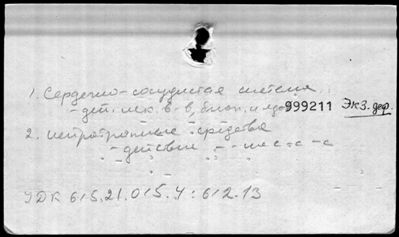 1. Сердечно-сосудистая система
- дей. лек. в-в, биол. и яд 999211 Экз. деф.
2. нейротропные средства
- действие - - на с-с-с
УДК 615.21.015.4:612.13